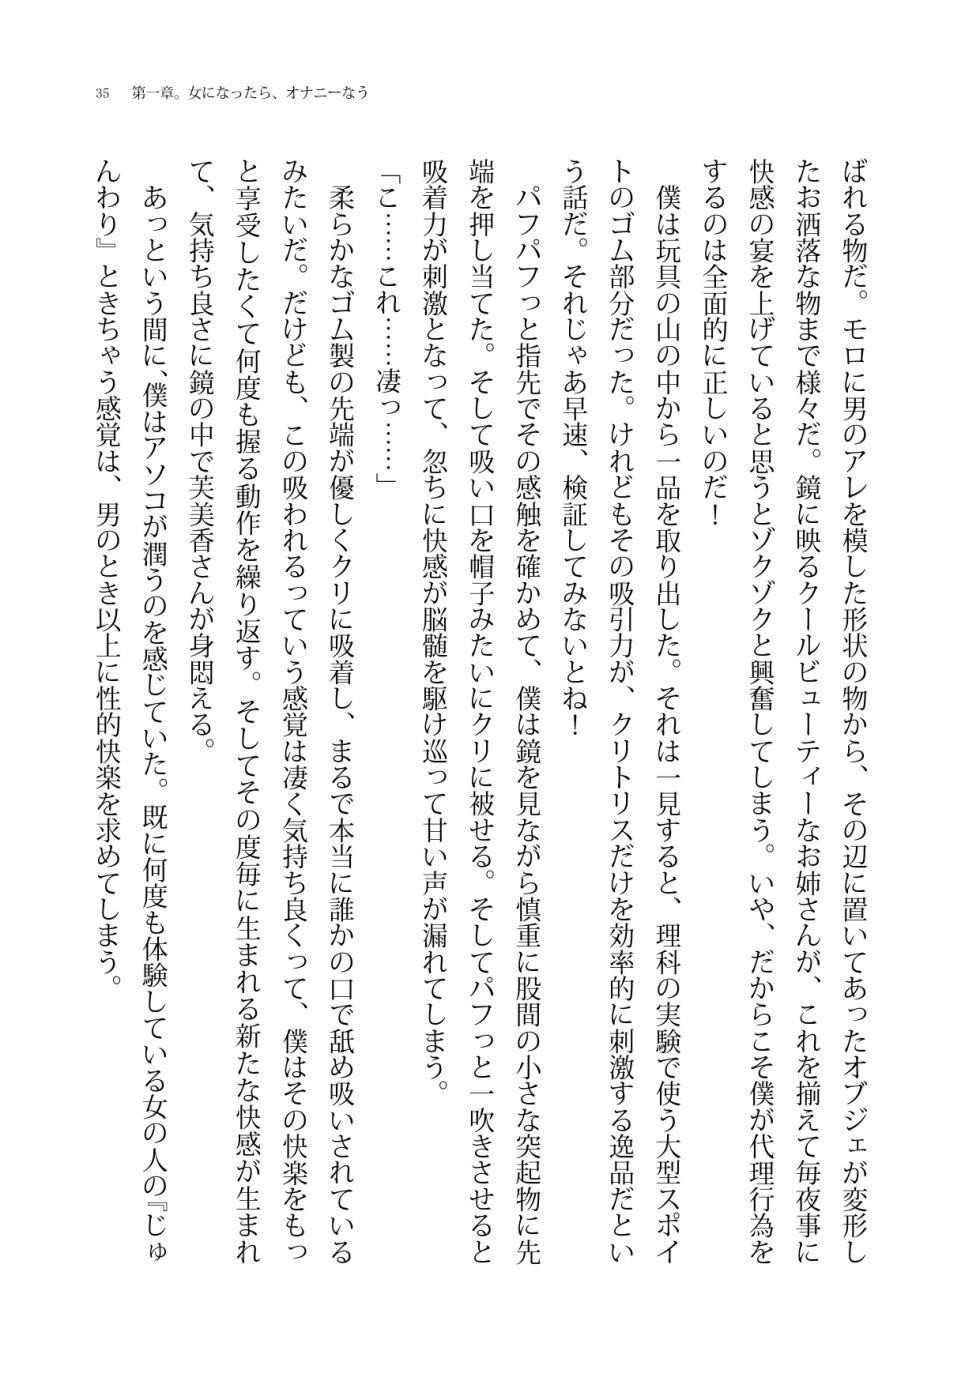 35　第一章。女になったら、オナニーなう
ばれる物だ。モロに男のアレを模した形状の物から、その辺に置いてあったオブジェが変形し
たお洒落な物まで様々だ。鏡に映るクールビューティーなお姉さんが、これを揃えて毎夜事に
快感の宴を上げていると思うとゾクゾクと興奮してしまう。いや、だからこそ僕が代理行為を
するのは全面的に正しいのだ！
　僕は玩具の山の中から一品を取り出した。それは一見すると、理科の実験で使う大型スポイ
トのゴム部分だった。けれどもその吸引力が、クリトリスだけを効率的に刺激する逸品だとい
う話だ。それじゃあ早速、検証してみないとね！
　パフパフっと指先でその感触を確かめて、僕は鏡を見ながら慎重に股間の小さな突起物に先
端を押し当てた。そして吸い口を帽子みたいにクリに被せる。そしてパフっと一吹きさせると
吸着力が刺激となって、忽ちに快感が脳髄を駆け巡って甘い声が漏れてしまう。
「こ……これ……凄っ……」
　柔らかなゴム製の先端が優しくクリに吸着し、まるで本当に誰かの口で舐め吸いされている
みたいだ。だけども、この吸われるっていう感覚は凄く気持ち良くって、僕はその快楽をもっ
と享受したくて何度も握る動作を繰り返す。そしてその度毎に生まれる新たな快感が生まれ
て、気持ち良さに鏡の中で芙美香さんが身悶える。
　あっという間に、僕はアソコが潤うのを感じていた。既に何度も体験している女の人の『じゅ
んわり』ときちゃう感覚は、男のとき以上に性的快楽を求めてしまう。